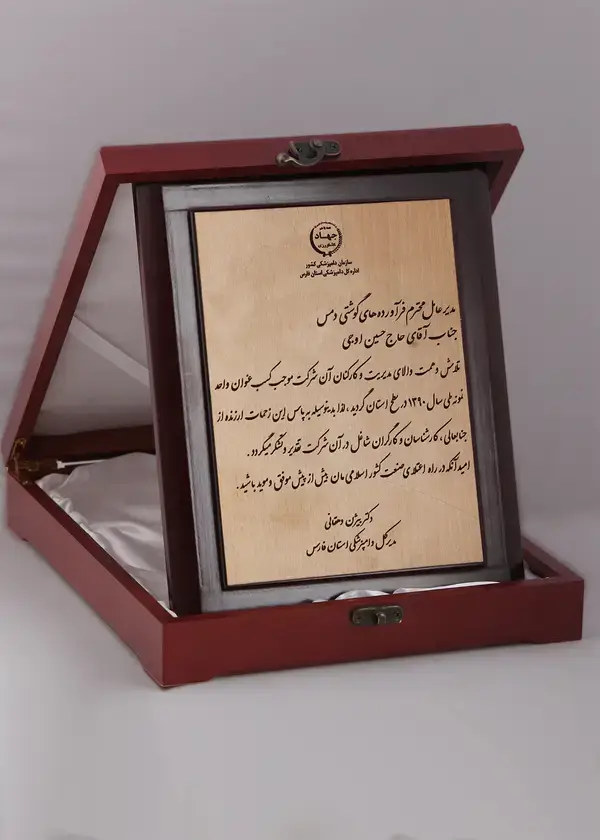 جهاد
کشاورزی
سازمان دامپزشکی کشور
اداره کل دامپزشکی استان فارس
مدیر عامل محترم فرآورده های گوشتی دمس
جناب آقای حاج حسین اوجی
تلاش و همت والای مدیریت و کارکنان آن شرکت موجب کسب عنوان واحد
نمونه ملی سال ۱۳۹۰ در سطح استان گردید ، لذا بدینوسیله به پاس این زحمات ارزنده از
جنابعالی ، کارشناسان و کارگران شاغل در آن شرکت تقدیر و تشکر میگردد .
امید آنکه در راه اعتلای صنعت کشور اسلامی مان بیش از پیش موفق و موید باشید .
دکتر بیژن دهقانی
مدیر کل دامپزشکی استان فارس